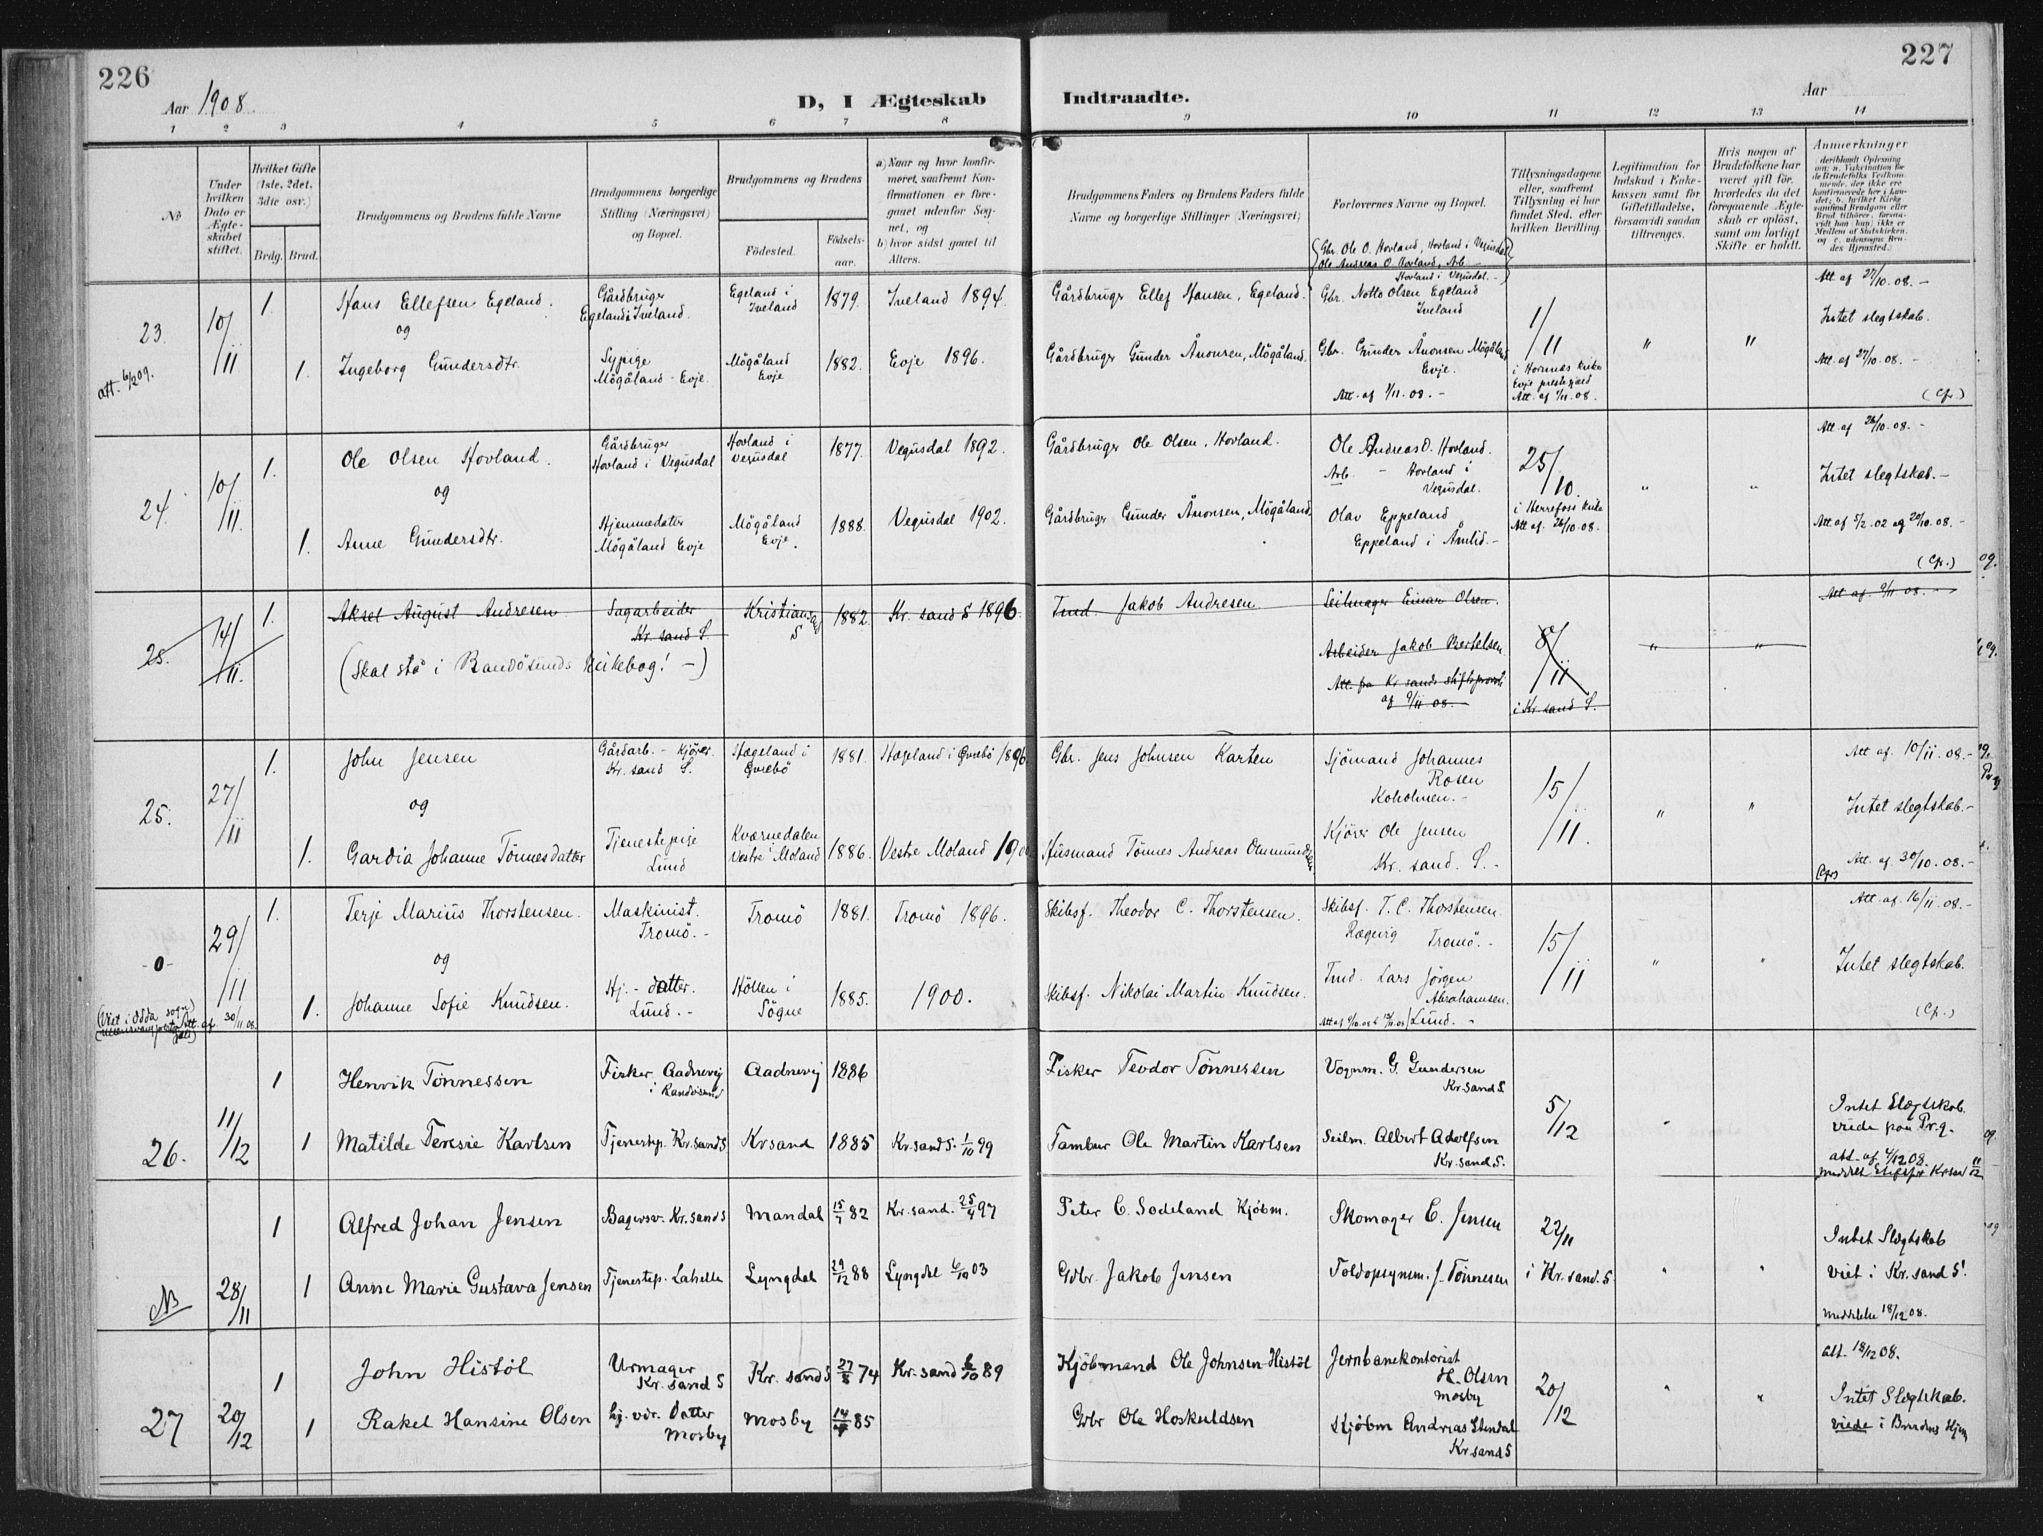 226
Aar 1908.
D, I Ægteskab
Indtraadte.
Aar
227
1 2 3 4 5 6 7 8 9 10 11 12 13 14
No
Under hvilken Dato er Ægteskabet stiftet.
Hvilket Gifte (1ste, 2det, 3die osv.)
Brdg. Brud.
Brudgommens og Brudens fulde Navne
Brudgommens borgerlige Stilling (Næringsvei) og Bopæl.
Brudgommens og Brudens
Fødested.
Fødselsaar.
a) Naar og hvor konfirmeret, saafremt Konfirmationen er foregaaet udenfor Sognet, og
b) hvor sidst gaaet til Alters.
Brudgommens Faders og Brudens Faders fulde Navne og borgerlige Stillinger (Næringsvei)
Forlovernes Navne og Bopæl.
Tillysningsdagene eller, saafremt Tillysning ei har fundet Sted, efter hvilken Bevilling.
Legitimation for Indskud i Enkekassen samt for Giftetilladelse, forsaavidt saadan tiltrænges.
Hvis nogen af Brudefolkene har været gift før, hvorledes da det foregaaende Ægteskab er opløst, samt om lovligt Skifte er holdt.
Anmerkninger
Gbr. Ole O. Hovland, Hovland i Vegusdal
Ole Andreas O. Hovland, Arb. –
Hovland i Vegusdal. –
23.
10/11
1.
Hans Ellefsen Egeland.
Gårdbruger
Egeland i Iveland.
Egeland i Iveland
1879.
Iveland 1894.
Gårdbruger Ellef Hansen, Egeland.
Gbr. Notto Olsen Egeland
Iveland
1/11
i Hornnes kirke
Evje prestegjeld
Att. af 1/11.08.
"
"
Att af 27/10.08. –
Intet slegtskab.
og
att. 6/2 09.
1.
Ingeborg Gundersdtr.
Sypige
Mögåland Evje.
Mögåland Evje
1882.
Evje 1896.
Gårdbruger Gunder Ånonsen, Mögåland.
Gbr. Gunder Ånonsen Mögåland
Evje.
Att. af 1/11.08. –
Att. af 27/10.08. –
(Cfr.)
24.
10/11.
1.
Ole Olsen Hovland.
Gårdbruger
Hovland i Vegusdal
Hovland i Vegusdal
1877.
Vegusdal 1892.
Gårdbruger Ole Olsen, Hovland.
Ole Andreas O. Hovland.
Arb. – Hovland i
Vegusdal.
25/10.
i Herrefoss kirke
Att af 26/10.08.
"
"
Att. af 26/10.08. –
Intet slegtskab. –
og
1.
Anne Gundersdtr.
Hjemmedatter
Mögåland Evje
Mögåland
Evje.
1888.
Vegusdal 1902.
Gårdbruger Gunder Ånonsen, Mögåland.
Olav Eppeland
Eppeland i Åmlid. –
Att af 5/2.02 og 20/10.08. –
(Cfr.)
25.
14/11.
1.
Aksel August Andresen
Sagarbeider
Kr.sand S.
Kristiansand S
1882.
Kr.sand S 1896
Tmd. Jakob Andresen.
Seilmager Einar Olsen.
Arbeider Jakob Bertelsen
8/11
i Kr.sand S.
"
"
Att af 9/11 08.
(Skal stå i Randösunds kirkebog! –)
af 9/11 08.
25.
27/11
1.
John Jensen
Gårdarb. – Kjører.
Kr.sand S.
Hægeland i
Øvrebö
1881.
Hægeland i Øvrebö 1896.
Gbr. Jens Johnsen Karten
Sjömand Johannes
Rosen
Koholmen. –
15/11.
"
"
Att af 10/11.08. –
Intet slegtskab. –
og
1.
Gardia Johanne Tönnesdatter
Tjenestepige
Lund
Kværnedalen
Vestre Moland
1886.
Vestre Moland 1900
Husmand Tönnes Andreas Ommundsen
Kjörer Ole Jensen
Kr.sand. S. –
Att. af 30/10.08. –
-o-
29/11
1.
Terje Marius Thorstensen.
Maskinist.
Tromö. –
Tromö
1881.
Tromö 1896.
Skibsf. Theodor C. Thorstensen.
Skibsf. T. C. Thorstensen.
Rægevig Tromö. –
15/11
"
"
Att. af. 16/11.08. –
Intet slegtskab.
og
(Viet i Odda sogn
Att. af 30/11 08
1.
Johanne Sofie Knudsen.
Hj. – datter.
Lund. –
Höllen i
Sögne
1885.
1900.
Skibsf. Nikolai Martin Knudsen.
Tmd. Lars Jörgen
Abrahamsen.
Lund. –
(Cfr.)
26.
11/12
1
Henrik Tönnessen
Fisker Aadnevig
i Randösund
Aadnevig
1886
Fisker Teodor Tönnessen
Vognm. G. Gundersen
Kr.sand S
5/12
"
Intet Slægtskab.
viede paa Pr.g.
1
Matilde Teresie Karlsen
Tjenestep. Kr.sand S
Kr.sand
1885
Kr.sand S. 1/10 99
Tambur Ole Martin Karlsen
Seilm. Albert Adolfsen
Kr.sand S.
att. af 4/12 08.
NB
28/11
1
Alfred Johan Jensen
Bagersv. Kr.sand S
Mandal
15/7 82
Kr.sand. 25/4 97
Peter C. Sodeland Kjöbm.
Skomager C. Jensen
22/11
i Kr.sand. S
"
"
Intet Slægtskab
viet i Kr.sand S!
meddelelse 18/12 08.
1
Anne Marie Gustava Jensen
Tjenestep. Lahelle
Lyngdal
29/12 88
Lyngdal 6/10 03
Gdbr. Jakob Jensen
Toldopsynsm. J. Tönnesen
27
20/12
1
John Histöl
Urmager
Kr.sand S
Kr.sand S
27/8 74
Kr.sand 6/10 89
Kjöbmand Ole Johnsen Histöl
Jernbanekontorist
H. Olsen
Mosby
20/12
"
"
att. 18/12 08.
Intet Slægtskab.
viede i Brudens Hjem
1
Rakel Hansine Olsen
hj. vær. Datter
Mosby
Mosby
85
Gdbr Ole Hoskuldsen
Kjøbm Andreas Stendal
Kr.sand S